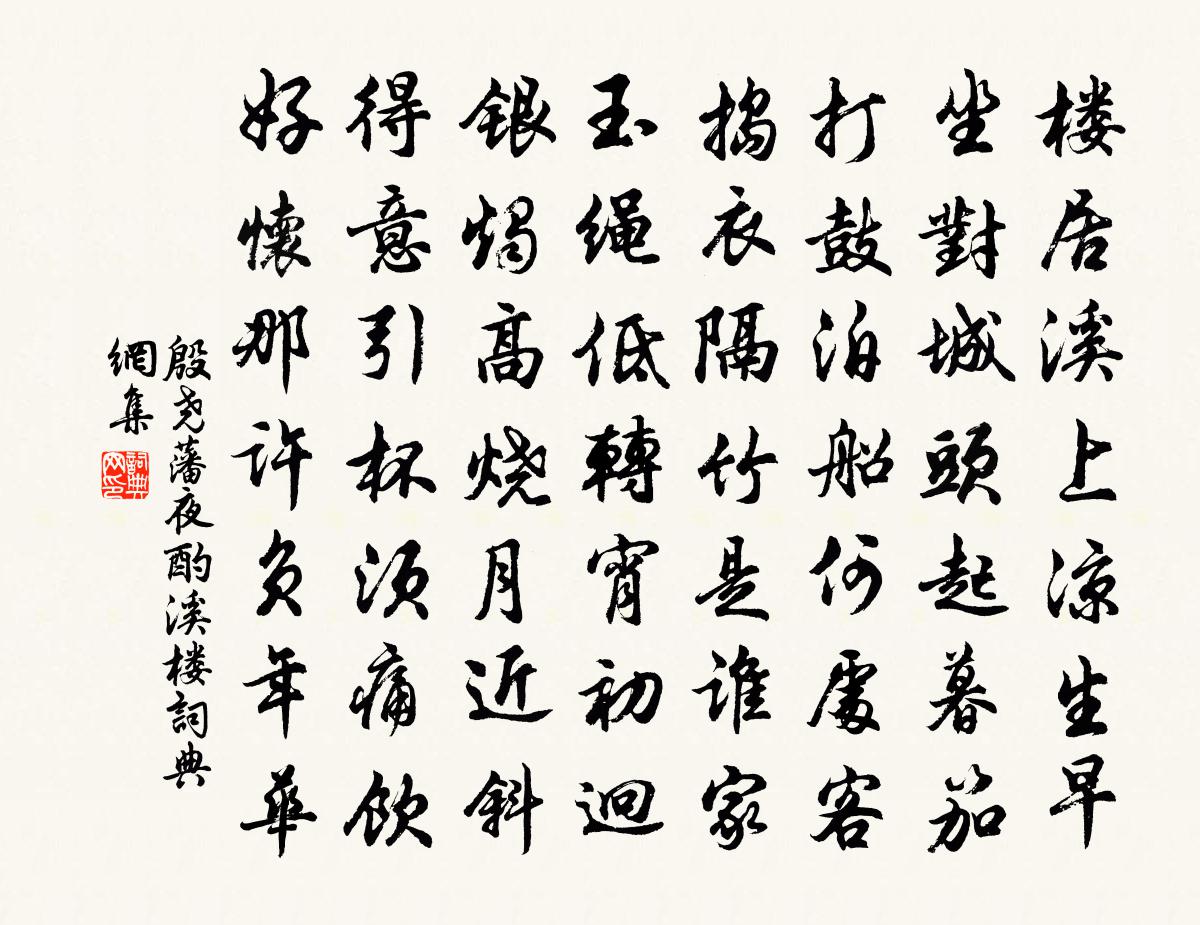 楼居溪上凉生早
坐對城頭起暮笳
打鼓泊船何處客
搗衣隔竹是谁家
玉绳低轉宵初迥
銀燭高烧月近斜
得意引杯须痛飲
好懷那许负年華
殷尧藩夜酌溪楼詞典
網集
詞典网印